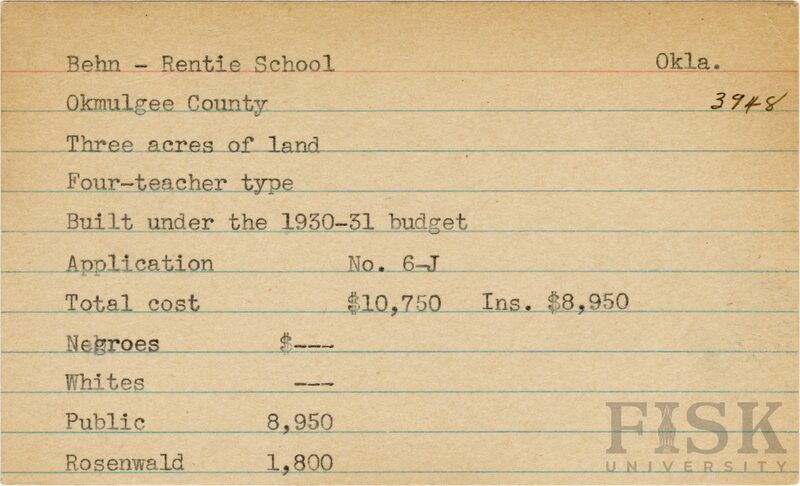 Behn - Rentie School Okla.
Okmulgee County 3948
Three acres of land
Four-teacher type
Built under the 1930-31 budget
Application No. 6-J
Total cost $10,750 Ins. $8,950
Negroes $---
Whites ---
Public 8,950
Rosenwald 1,800
FISK
UNIVERSITY